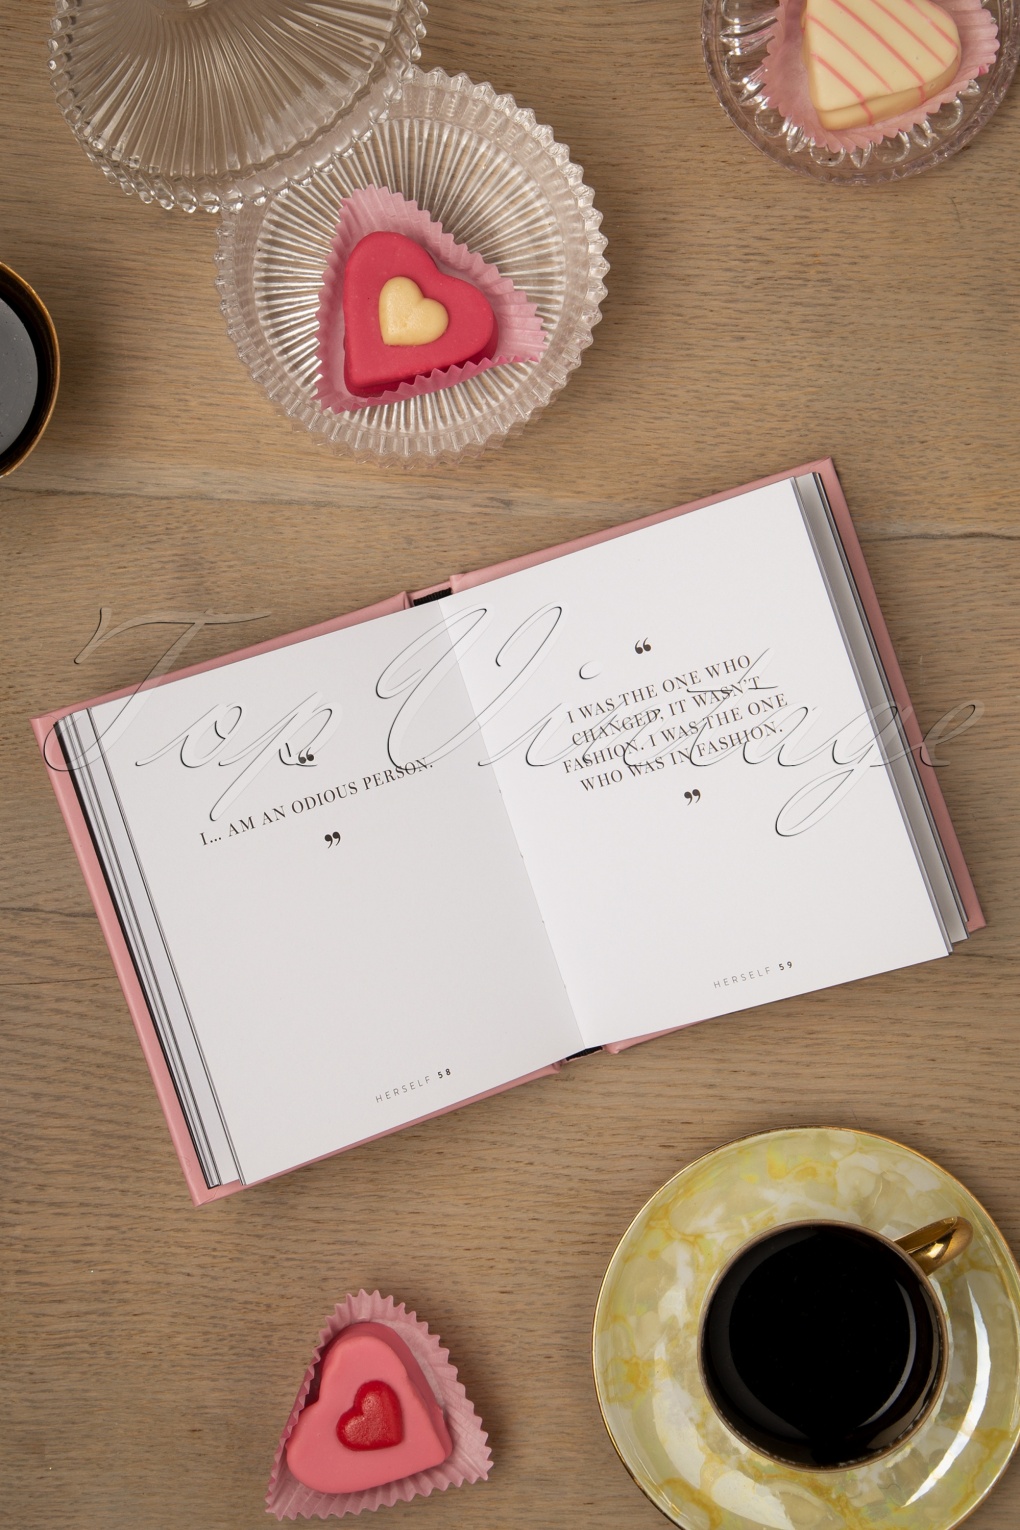 “
I... AM AN ODIOUS PERSON.
”
HERSELF 58
“
I WAS THE ONE WHO
CHANGED, IT WASN'T
FASHION. I WAS THE ONE
WHO WAS IN FASHION.
”
HERSELF 59
TopVintage